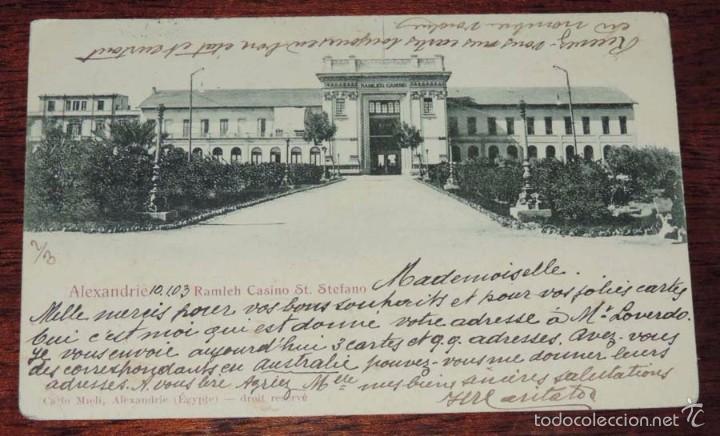 Recevez-vous mes cartes toujours en bon état et surtout
en nombre voulu
RAMLEH CASINO
Alexandrie 10.1.03 Ramleh Casino St. Stefano
Mademoiselle.
Mille mercis pour vos bons souhaits et pour vos jolies cartes
Oui c'est moi qui est donné votre adresse à Mr Loverdo.
Je vous envoie aujourd'hui 3 cartes et q.q. adresses. Avez-vous
des correspondants en Australie pouvez-vous me donner leurs
adresses. A vous lire Agréez Mlle mes bien sincères salutations
Carlo Mieli, Alexandrie (Égypte) — droit reservé
todocoleccion